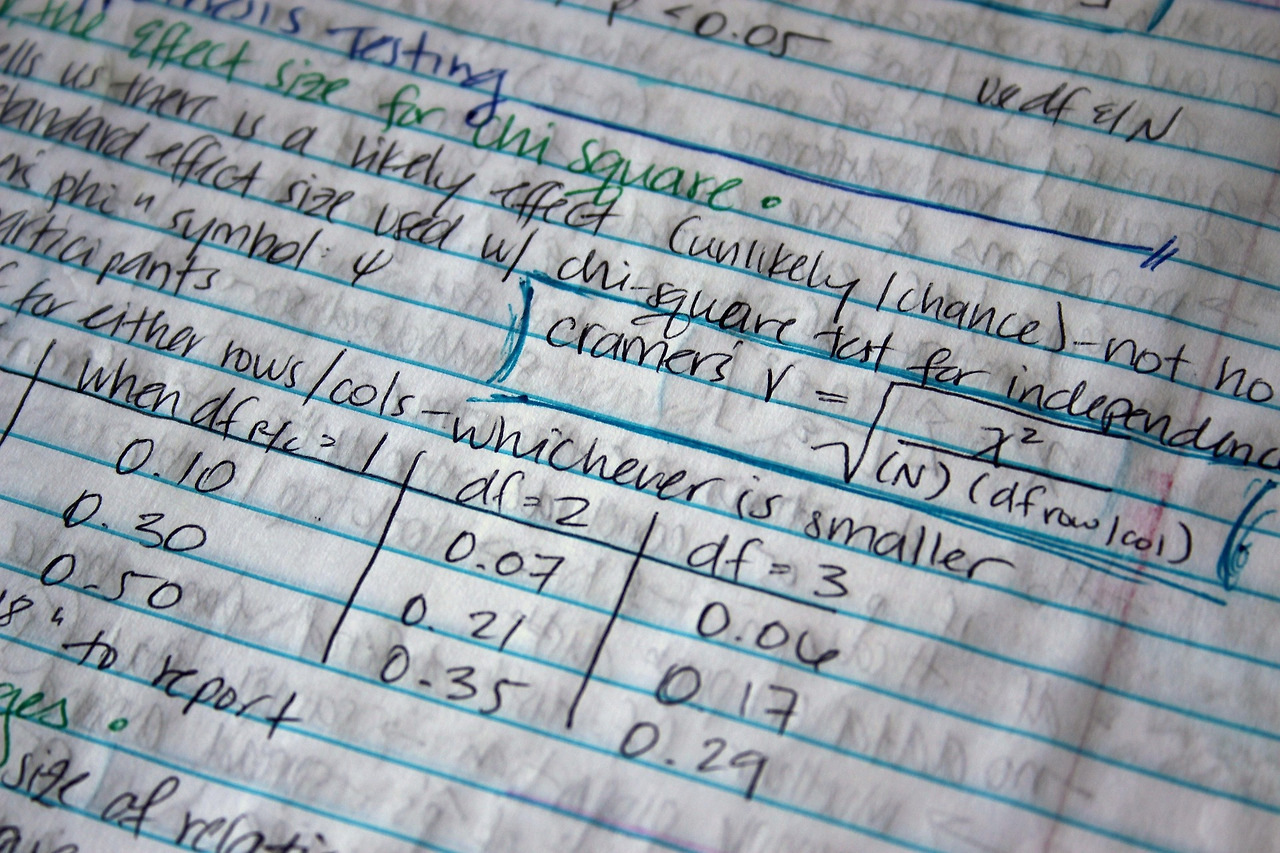 Testing
p < 0.05
df & N
the effect size for chi square.
us there is a likely effect (unlikely / chance) - not
standard effect size used w/ chi-square test for independenc
phi" symbol: ψ
cramer's V = √ x² / (N) (df row/col)
participants
for either rows/cols - whichever is smaller
when df R/C = 1 | df = 2 | df = 3
0.10 | 0.07 | 0.06
0.30 | 0.21 | 0.17
0.50 | 0.35 | 0.29
" to report
size of